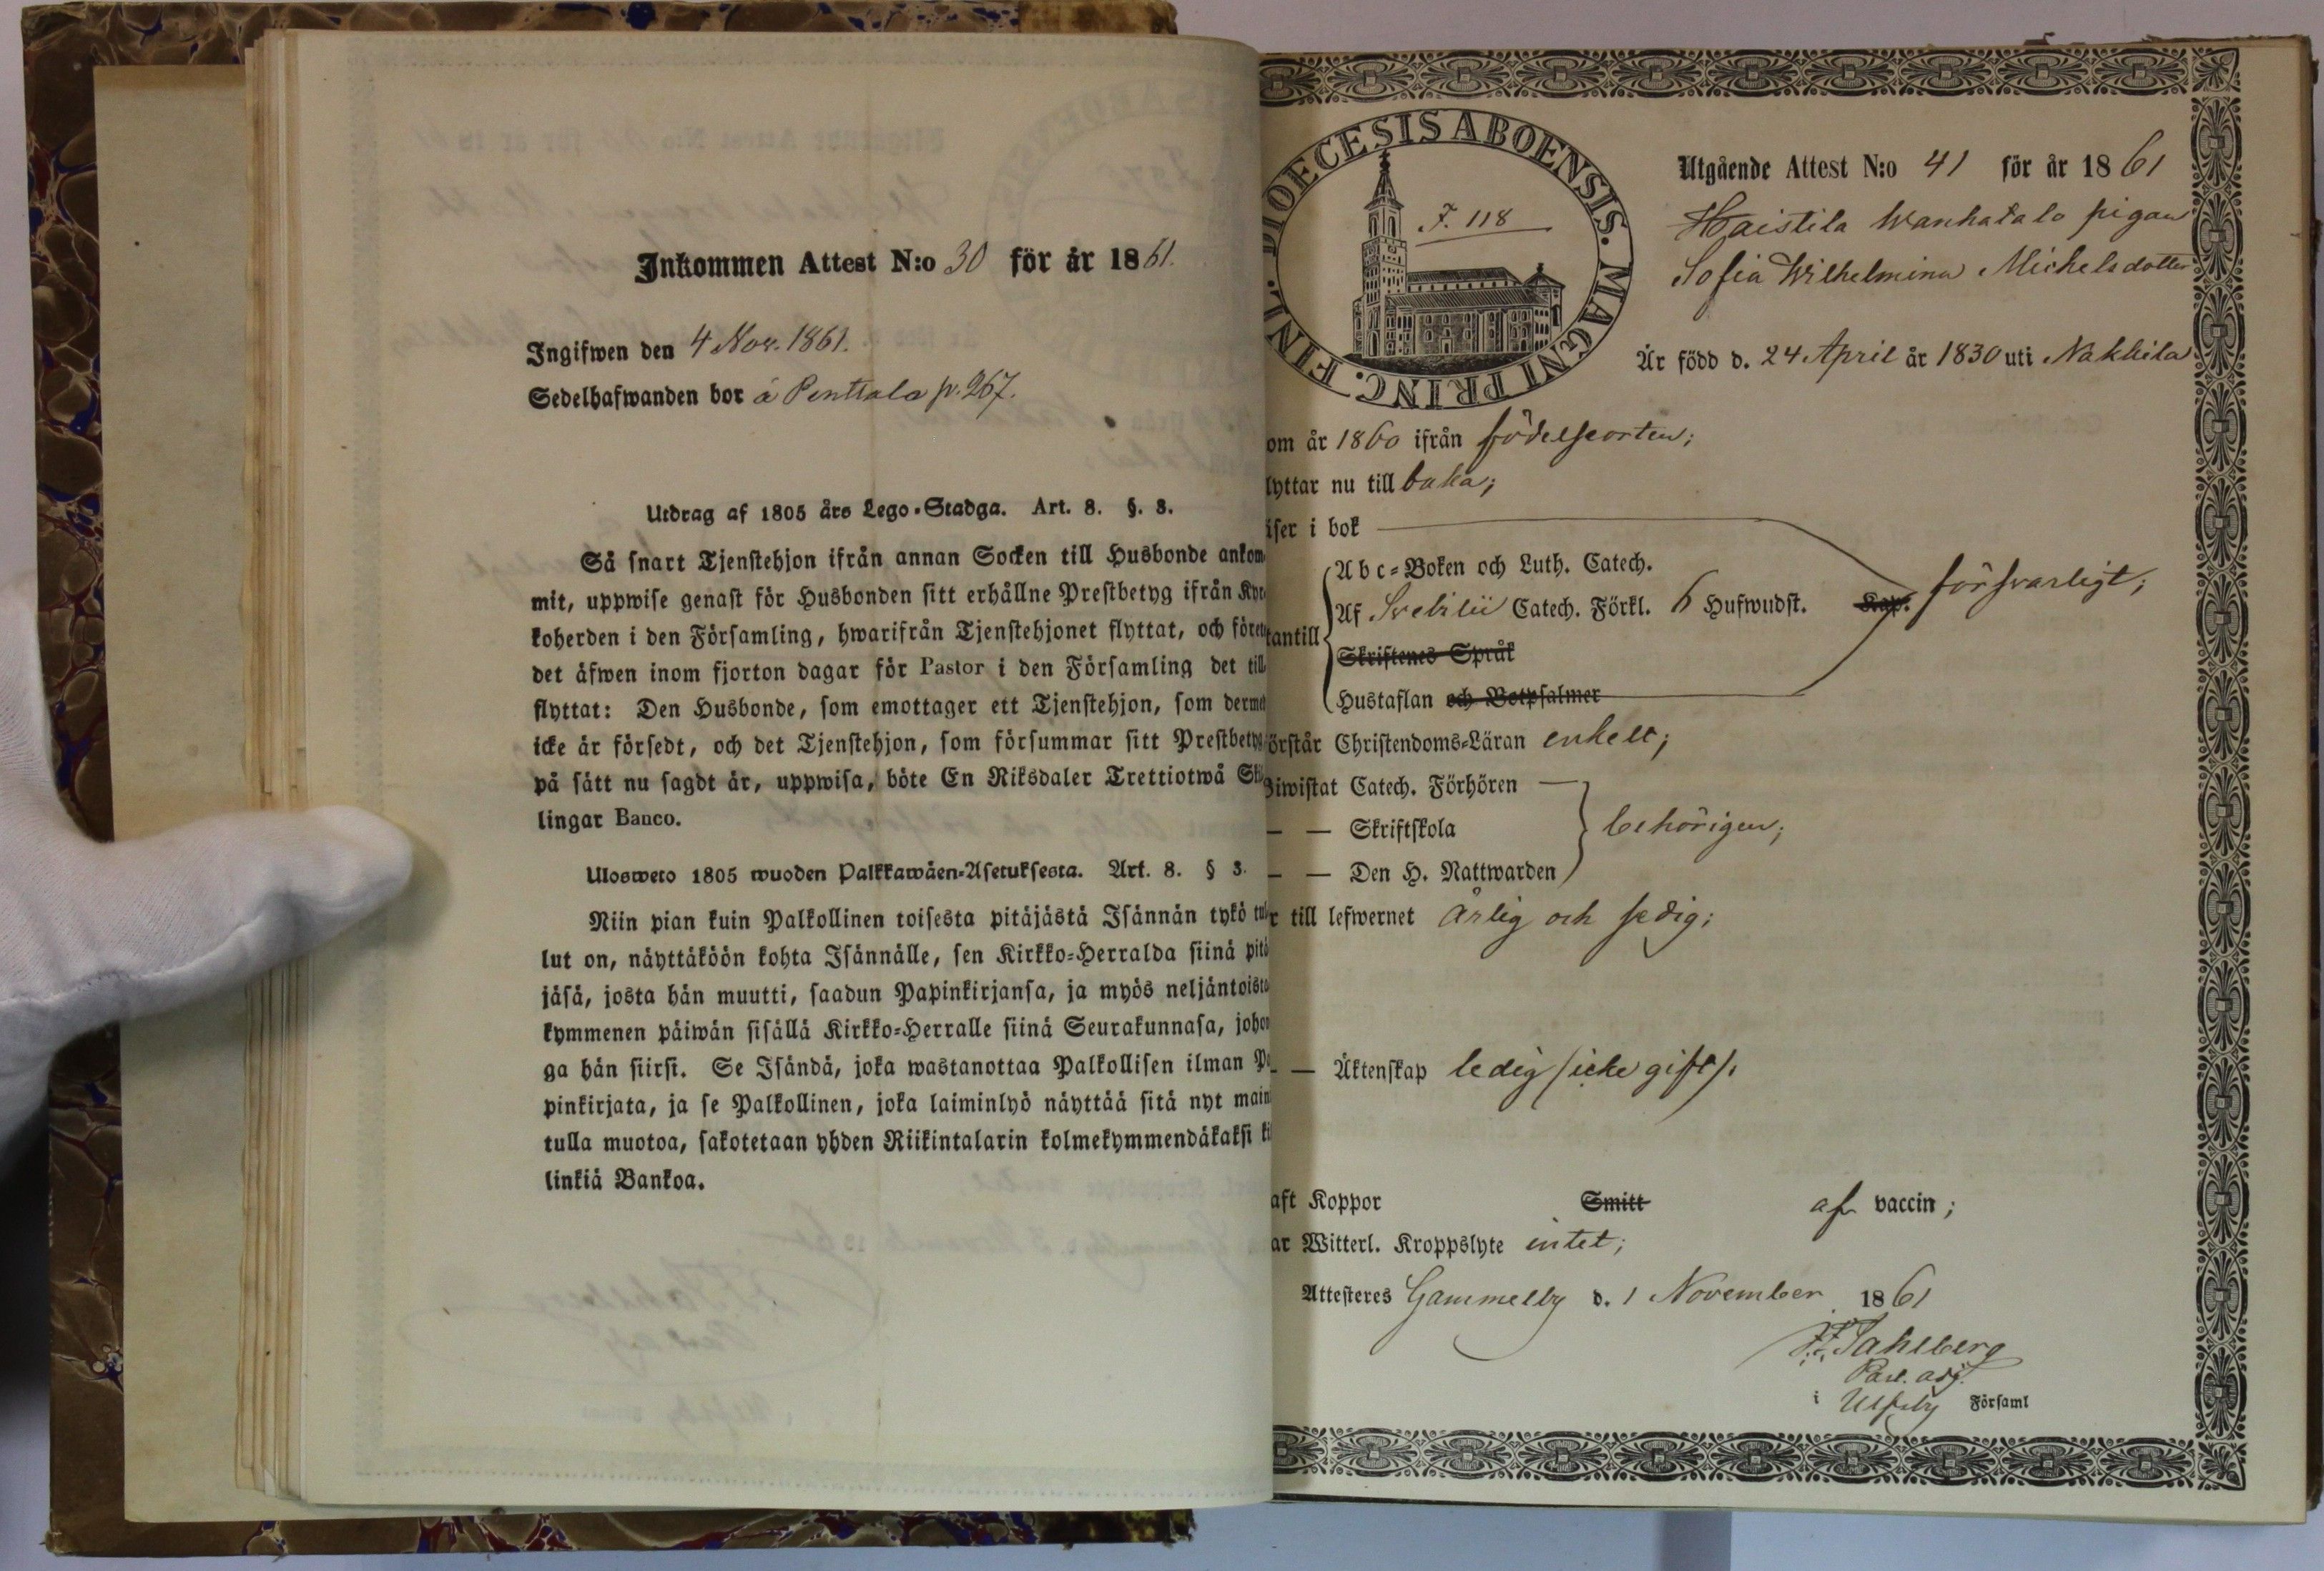 Inkommen Attest N:o 30 för år 1861.
Ingifwen den 4 Nov. 1861.
Sedelhafwanden bor á Penttala p. 267.
Utdrag af 1805 års Lego-Stadga. Art. 8. §. 3.
Så snart Tjenstehjon ifrån annan Socken till Husbonde ankom
mit, uppwise genast för Husbonden sitt erhållne Prestbetyg ifrån Kyr
koherden i den Församling, hwarifrån Tjenstehjonet flyttat, och förete
det äfwen inom fjorton dagar för Pastor i den Församling det till
flyttat: Den Husbonde, som emottager ett Tjenstehjon, som derme
icke är försedt, och det Tjenstehjon, som försummar sitt Prestbetyg
på sätt nu sagdt är, uppwisa, böte En Riksdaler Trettiotwå Skil
lingar Banco.
Ulosweto 1805 wuoden Palkkawäen-Asetuksesta. Art. 8. § 3.
Niin pian kuin Palkollinen toisesta pitäjästä Isännän tykö tul
lut on, näyttäköön kohta Isännälle, sen Kirkko-Herralda siinä pitä
jäsä, josta hän muutti, saadun Papinkirjansa, ja myös neljäntoista
kymmenen päiwän sisällä Kirkko-Herralle siinä Seurakunnasa, johon
ga hän siirsi. Se Isändä, joka wastanottaa Palkollisen ilman Pa
pinkirjata, ja se Palkollinen, joka laiminlyö näyttää sitä nyt main
tulla muotoa, sakotetaan yhden Riikintalarin kolmekymmendäkaksi ki
linkiä Bankoa.
DIOECESIS ABOENSIS. MAGNI PRINC. FINL.
F. 118
Utgående Attest N:o 41 för år 1861
Haistila Wanhatalo pigan
Sofia Wilhelmina Michelsdotter
Är född d. 24 April år 1830 uti Nakkila
om år 1860 ifrån födelseorten;
lyttar nu till baka;
iser i bok
Abc-Boken och Luth. Catech.
Af Svebilii Catech. Förkl. 6 Hufwudst. Kap. försvarligt;
tantill
Skriftenes Språk
Hustaflan och Botpsalmer
örstår Christendoms-Läran enkelt;
Biwistat Catech. Förhören
— — Skriftskola behörigen;
— — Den H. Nattwarden
r till lefwernet ärlig och sedig;
— — Äktenskap ledig /icke gift/.
aft Koppor Smitt af vaccin;
ar Witterl. Kroppslyte intet;
Attesteres Gammelby d. 1 November 1861
F. F. Sahlberg
Past. adj.
i Ulfsby Församl